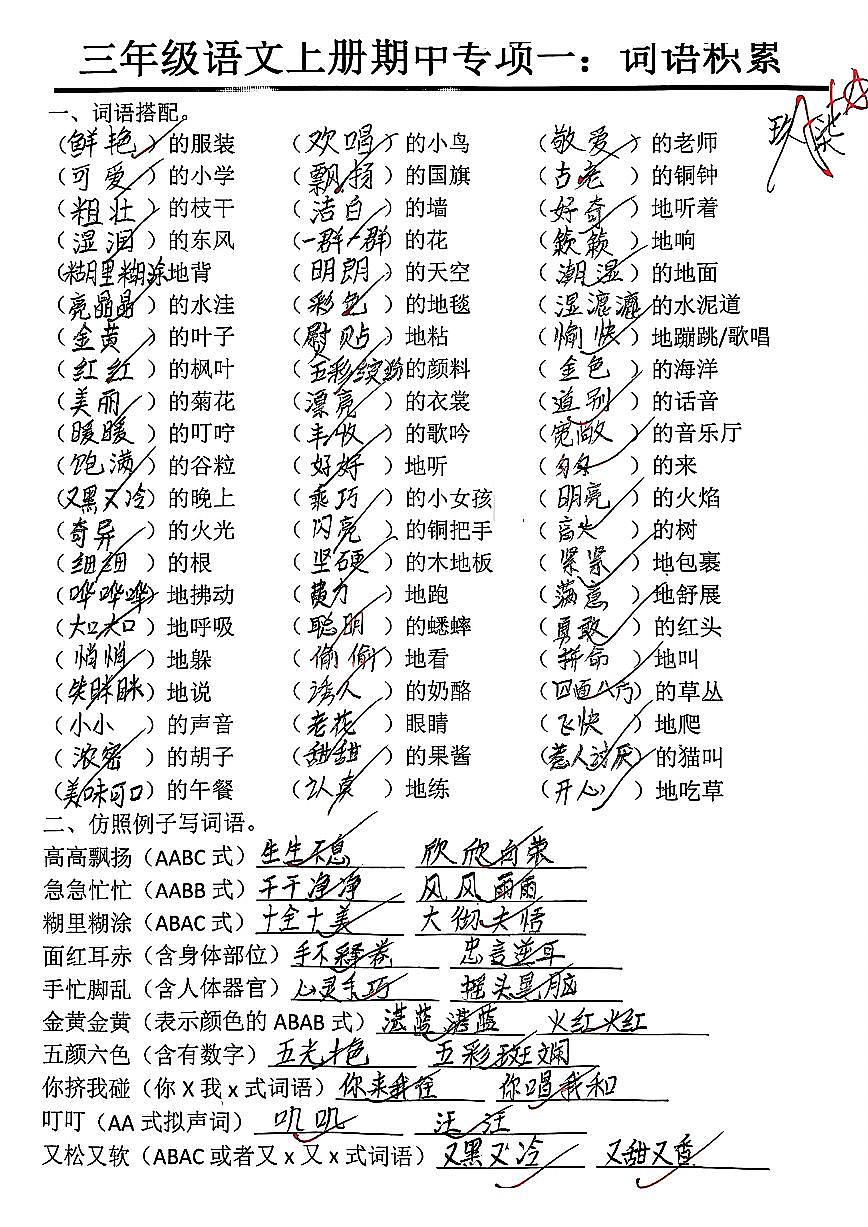 三年级语文上册期中专项一：词语积累
一、词语搭配。
（鲜艳）的服装 （欢唱）的小鸟 （敬爱）的老师
（可爱）的小学 （飘扬）的国旗 （古老）的铜钟
（粗壮）的枝干 （洁白）的墙 （好奇）地听着
（湿润）的东风 （一群一群）的花 （簌簌）地响
（糊里糊涂地背 （明朗）的天空 （潮湿）的地面
（亮晶晶）的水洼 （彩色）的地毯 （湿漉漉）的水泥道
（金黄）的叶子 （熨贴）地粘 （愉快）地蹦跳/歌唱
（红红）的枫叶 （五彩缤纷的颜料 （金色）的海洋
（美丽）的菊花 （漂亮）的衣裳 （道别）的话音
（暖暖）的叮咛 （丰收）的歌吟 （宽敞）的音乐厅
（饱满）的谷粒 （好好）地听 （匆匆）的来
（又黑又冷）的晚上 （乖巧）的小女孩 （明亮）的火焰
（奇异）的火光 （闪亮）的铜把手 （高大）的树
（细细）的根 （坚硬）的木地板 （紧紧）地包裹
（哗哗哗）地拂动 （费力）地跑 （满意）地舒展
（大口大口）地呼吸 （聪明）的蟋蟀 （勇敢）的红头
（悄悄）地躲 （偷偷）地看 （拼命）地叫
（笑眯眯）地说 （诱人）的奶酪 （四面八方）的草丛
（小小）的声音 （老花）眼睛 （飞快）地爬
（浓密）的胡子 （甜甜）的果酱 （惹人讨厌）的猫叫
（美味可口）的午餐 （认真）地练 （开心）地吃草
二、仿照例子写词语。
高高飘扬（AABC 式）生生不息 欣欣向荣
急急忙忙（AABB 式）干干净净 风风雨雨
糊里糊涂（ABAC 式）十全十美 大彻大悟
面红耳赤（含身体部位）手不释卷 忠言逆耳
手忙脚乱（含人体器官）心灵手巧 摇头晃脑
金黄金黄（表示颜色的 ABAB 式）湛蓝湛蓝 火红火红
五颜六色（含有数字）五光十色 五彩斑斓
你挤我碰（你 X 我 x 式词语）你来我往 你唱我和
叮叮（AA 式拟声词）叽叽 汪汪
又松又软（ABAC 或者又 x 又 x 式词语）又黑又冷 又甜又香